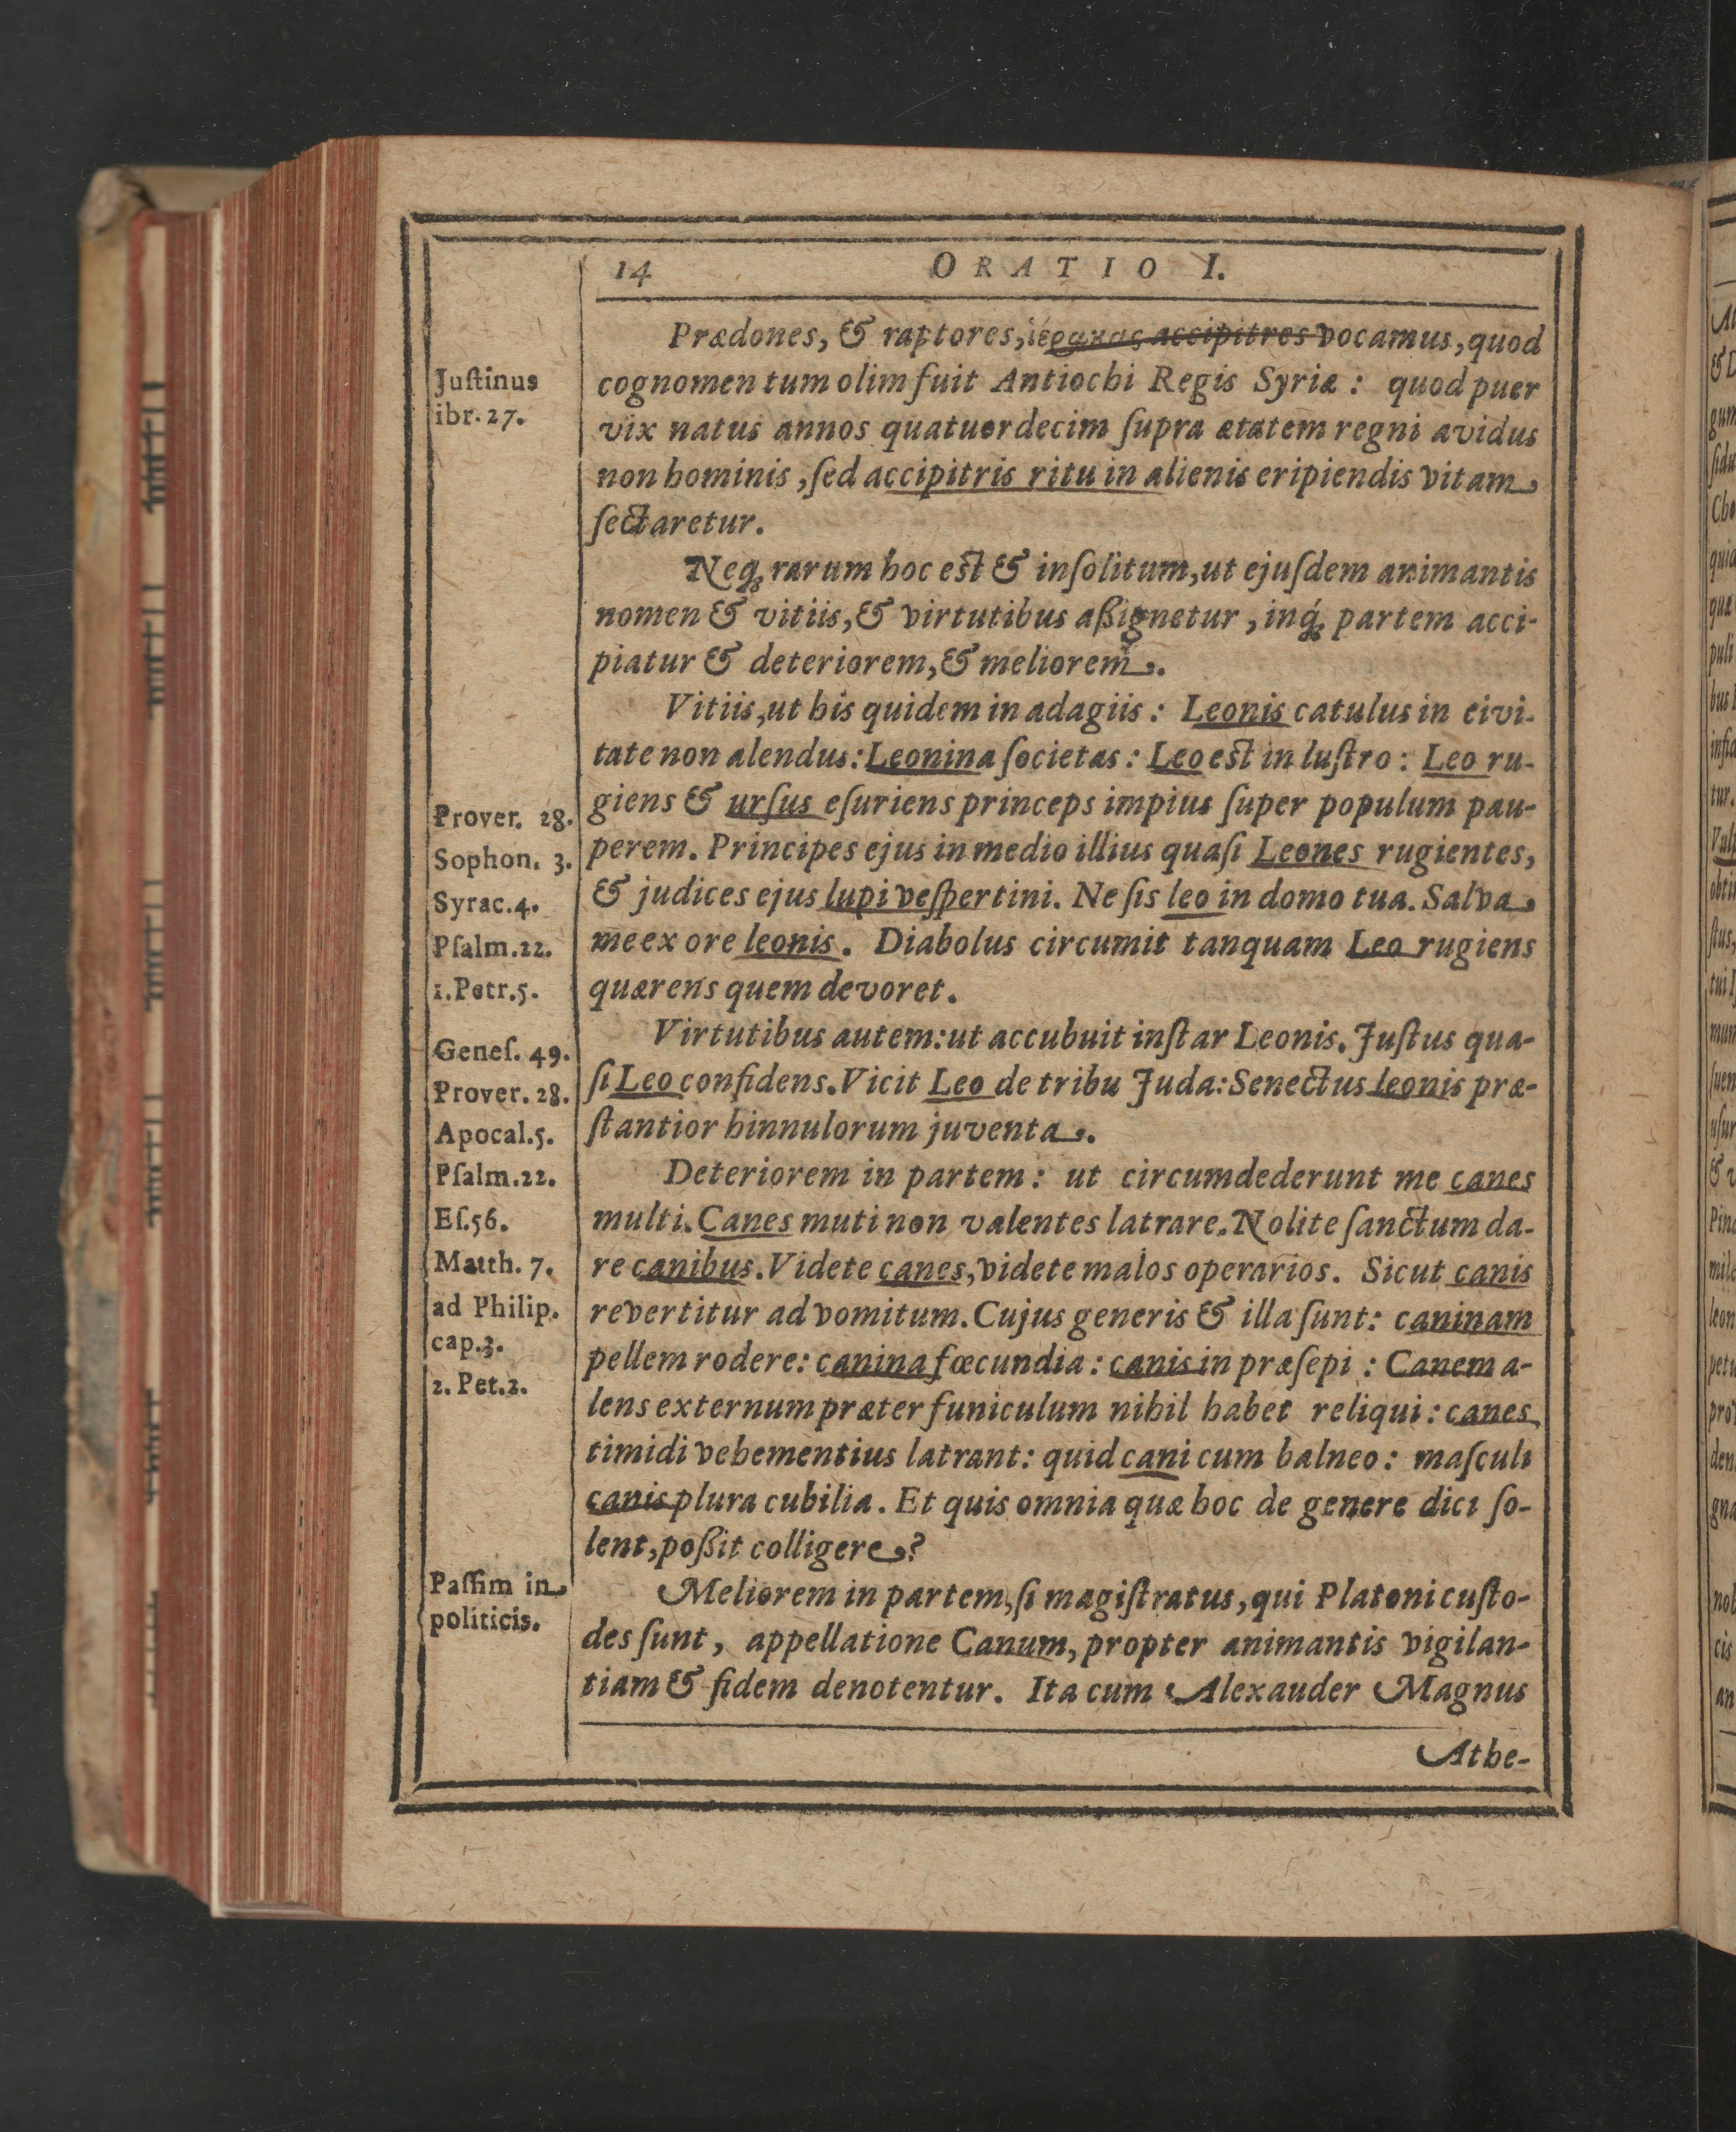 14 ORATIO I.
Prædones, & raptores, ἱέρακας accipitres vocamus, quod
cognomentum olim fuit Antiochi Regis Syriæ: quod puer
vix natus annos quatuordecim ſupra ætatem regni avidus
non hominis, ſed accipitris ritu in alienis eripiendis vitam
ſectaretur.
Neq́ꝫ rarum hoc eſt & inſolitum, ut ejuſdem animantis
nomen & vitiis, & virtutibus aßignetur, inq́ꝫ partem acci-
piatur & deteriorem, & meliorem.
Vitiis, ut his quidem in adagiis: Leonis catulus in eivi-
tate non alendus: Leonina ſocietas: Leo eſt in luſtro: Leo ru-
giens & urſus eſuriens princeps impius ſuper populum pau-
perem. Principes ejus in medio illius quaſi Leones rugientes,
& judices ejus lupi veſpertini. Ne ſis leo in domo tua. Salva
me ex ore leonis. Diabolus circumit tanquam Leo rugiens
quærens quem devoret.
Virtutibus autem: ut accubuit inſtar Leonis. Juſtus qua-
ſi Leo confidens. Vicit Leo de tribu Juda: Senectus leonis præ-
ſtantior hinnulorum juventa.
Deteriorem in partem: ut circumdederunt me canes
multi. Canes muti non valentes latrare. Nolite ſanctum da-
re canibus. Videte canes, videte malos operarios. Sicut canis
revertitur ad vomitum. Cujus generis & illa ſunt: caninam
pellem rodere: canina fœcundia: canis in præſepi: Canem a-
lens externum præter funiculum nihil habet reliqui: canes
timidi vehementius latrant: quid cani cum balneo: maſculi
canis plura cubilia. Et quis omnia quæ hoc de genere dici ſo-
lent, poßit colligere?
Meliorem in partem, ſi magiſtratus, qui Platoni cuſto-
des ſunt, appellatione Canum, propter animantis vigilan-
tiam & fidem denotentur. Ita cum Alexauder Magnus
Athe-
Juſtinus
ibr. 27.
Prover. 28.
Sophon. 3.
Syrac. 4.
Pſalm. 22.
1. Petr. 5.
Geneſ. 49.
Prover. 28.
Apocal. 5.
Pſalm. 22.
Eſ. 56.
Matth. 7.
ad Philip.
cap. 3.
2. Pet. 2.
Paſſim in
politicis.